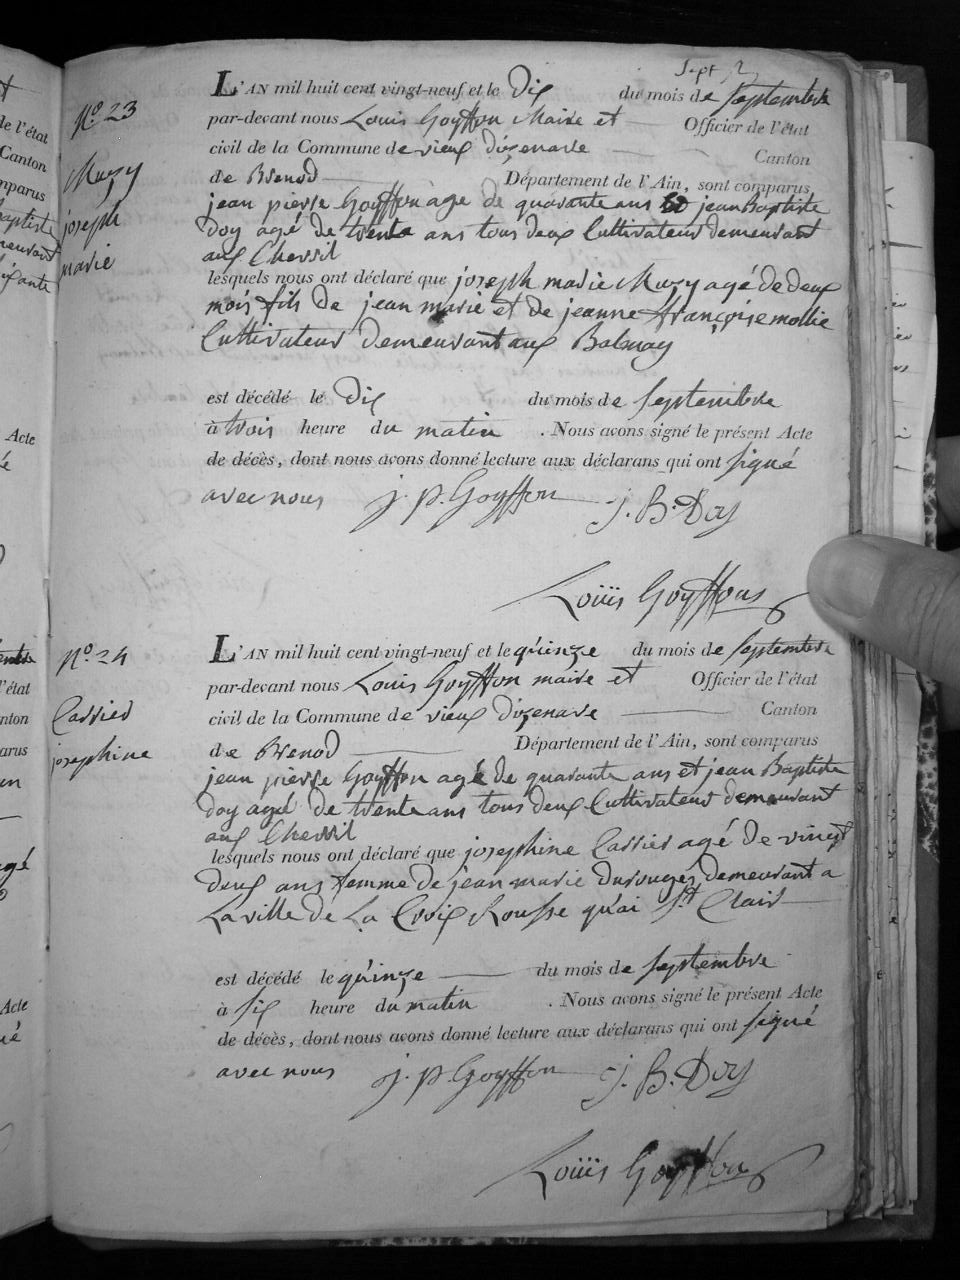 Sept
No. 23
Muzy
joseph
marie
L'AN mil huit cent vingt-neuf et le Dix du mois de Septembre
par-devant nous Louis Goyffon Maire et Officier de l'état
civil de la Commune de vieux d'izenave Canton
de Brenod Département de l'Ain, sont comparus
jean pierre Goyffon age de quarante ans et jean Baptiste
Doy agé de trente ans tous deux Cultivateur demeurant
aux Chevril
lesquels nous ont déclaré que joseph marie Muzy agé de deux
mois fils de jean marie et de jeanne françoise mollie
Cultivateur demeurant aux Balmay
est décédé le Dix du mois de Septembre
à trois heure du matin . Nous avons signé le présent Acte
de décès, dont nous avons donné lecture aux déclarans qui ont signé
avec nous j. p. Goyffon j. B. Doy
Louis Goyffon
No. 24
Carrier
josephine
L'AN mil huit cent vingt-neuf et le quinze du mois de Septembre
par-devant nous Louis Goyffon maire et Officier de l'état
civil de la Commune de vieux d'izenave Canton
de Brenod Département de l'Ain, sont comparus
jean pierre Goyffon agé de quarante ans et jean Baptiste
Doy agé de trente ans tous deux Cultivateur demeurant
aux Chevril
lesquels nous ont déclaré que josephine Carrier agé de vingt
deux ans femme de jean marie demeurant a
La ville de La Croix Rousse quai St Clair
est décédé le quinze du mois de Septembre
à six heure du matin . Nous avons signé le présent Acte
de décès, dont nous avons donné lecture aux déclarans qui ont signé
avec nous j. p. Goyffon j. B. Doy
Louis Goyffon